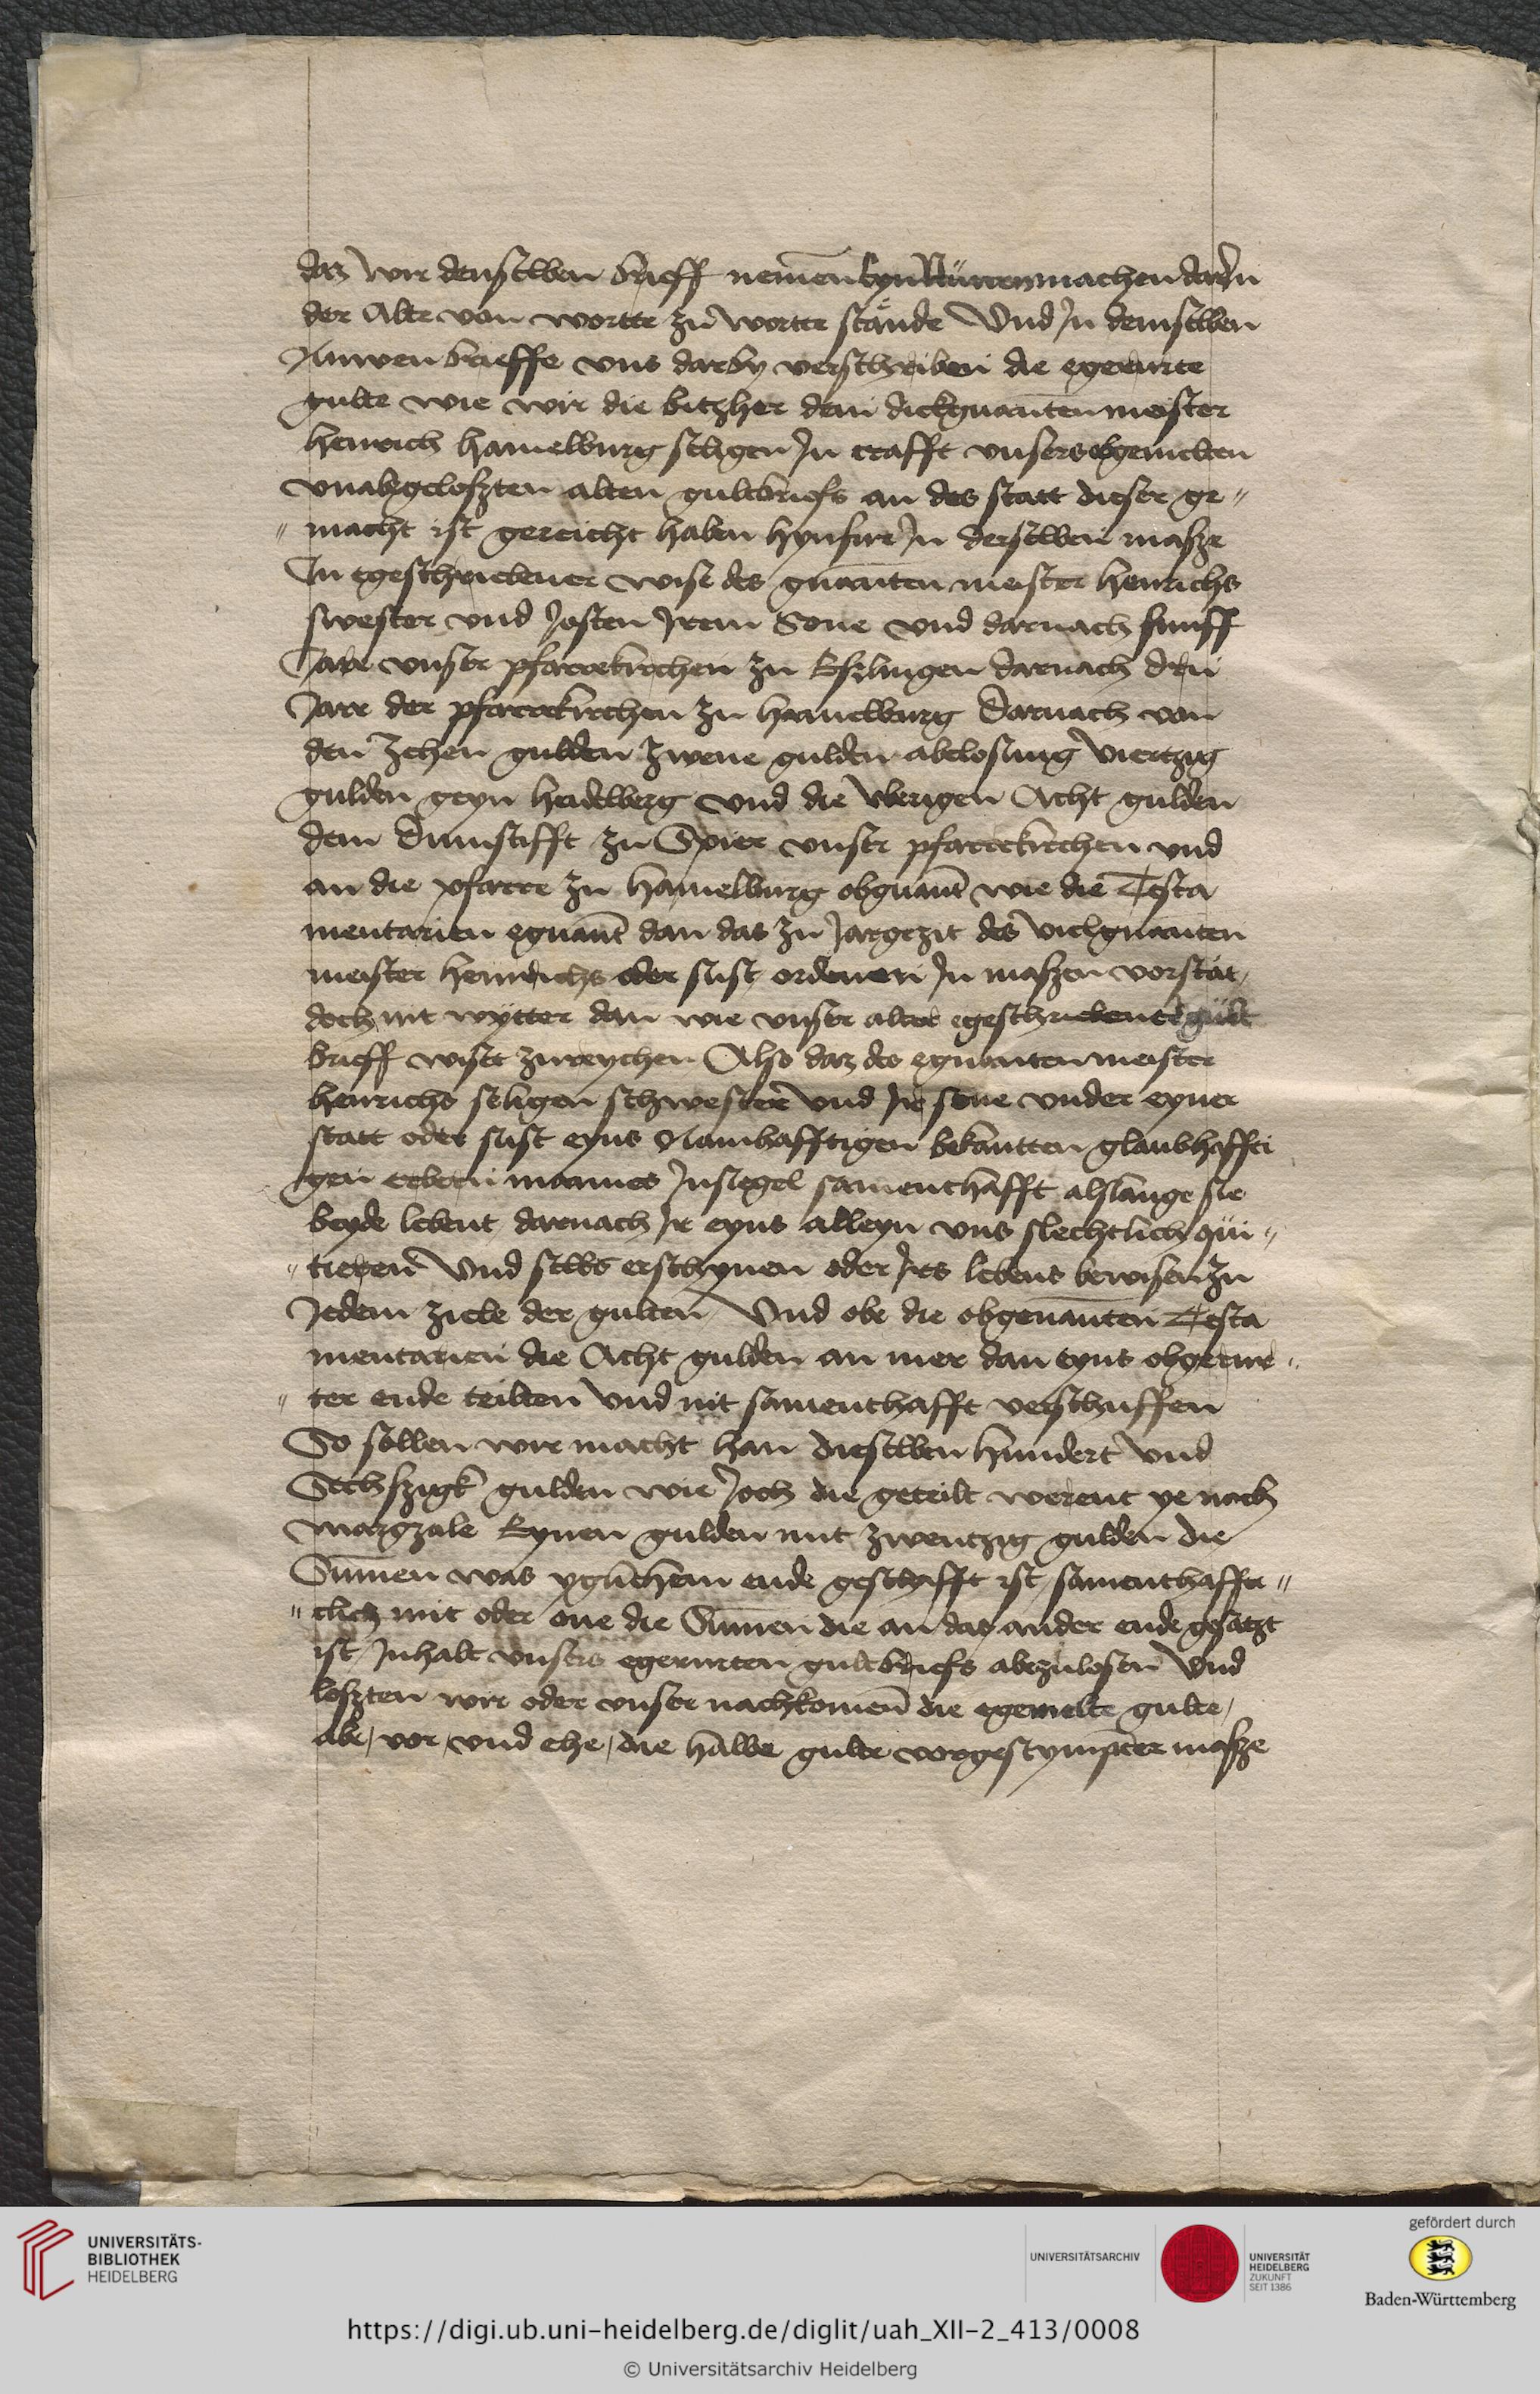 daz wir denselben brieff nemen Eyn Nuwen machen darIn
der Alte von wortte zu wortte stande Und In demselben
Nuwen brieffe uns darby verschriben die egerurte
gulte wie wir die bitzher dem dickgnanten meister
Henrich Hamelburg seligen In crafft unsers obgemelten
unabgeloszten alten gultbriefs an des statt dieser ge„
„macht ist gereicht haben hynfure In derselben masze
In egeschriebener wise des gnanten meister Henrichs
swester und Josten Irem Sone und darnach funff
Jare unser pfarrekirchen zu Eszlingen darnach dru
Jare der pfarrekirchen zu Hamelburg Darnach von
den zehen gulden zwene gulden abelosung viertzig
gulden geyn Heidelberg und die uberigen Acht gulden
dem Dumstifft zu Spier unser pfarrekirchen und
an die pfarre zu Hamelburg obgnant wie die Testa
mentarien egnant dan das zu Jargezit des vielgnanten
meister Heinrichs oder sust ordenen In maszen vorstat,
doch nit wytter dan wie unser alter egeschriebener gult
brieff wiset zureychen Also daz des egnanten meister
Henrichs seligen schwester und Ir sone under eyner
statt oder sust eyns Namhafftigen bekantten glaubhaffti
gen erbern mannes Insiegel samenthafft alslange sie
beyde lebent, darnach Ir eyns alleyn uns slechtlich qui„
„tieren Und selbs erschynen oder Irs lebens bewisen zu
Jedem ziele der gulten, Und obe die obgenanten Testa
mentarien die Acht gulden an mer dan eyns obgerur„
„ter ende teilten und nit samenthafft verschuffen
So sollen wir macht han dieselben hundert und
Sechszigk gulden wie Joch die geteilt werent ye nach
margzale Eynen gulden mit zwentzig gulden die
Summen was yglichem ende geschafft ist, samenthaffti„
„clich mit oder one die Summen die an das ander ende gesatzt
ist, Inhalt unsers egerurten gultbriefs abezulosen Und
loszten wir oder unser nachkomen die egemelte gulte,
abe, vor, und ehe, die halbe gulte vorgestympter masze
UNIVERSITÄTS-
BIBLIOTHEK
HEIDELBERG
UNIVERSITÄTSARCHIV
UNIVERSITÄT
HEIDELBERG
ZUKUNFT
SEIT 1386
gefördert durch
Baden-Württemberg
https://digi.ub.uni-heidelberg.de/diglit/uah_XII-2_413/0008
© Universitätsarchiv Heidelberg